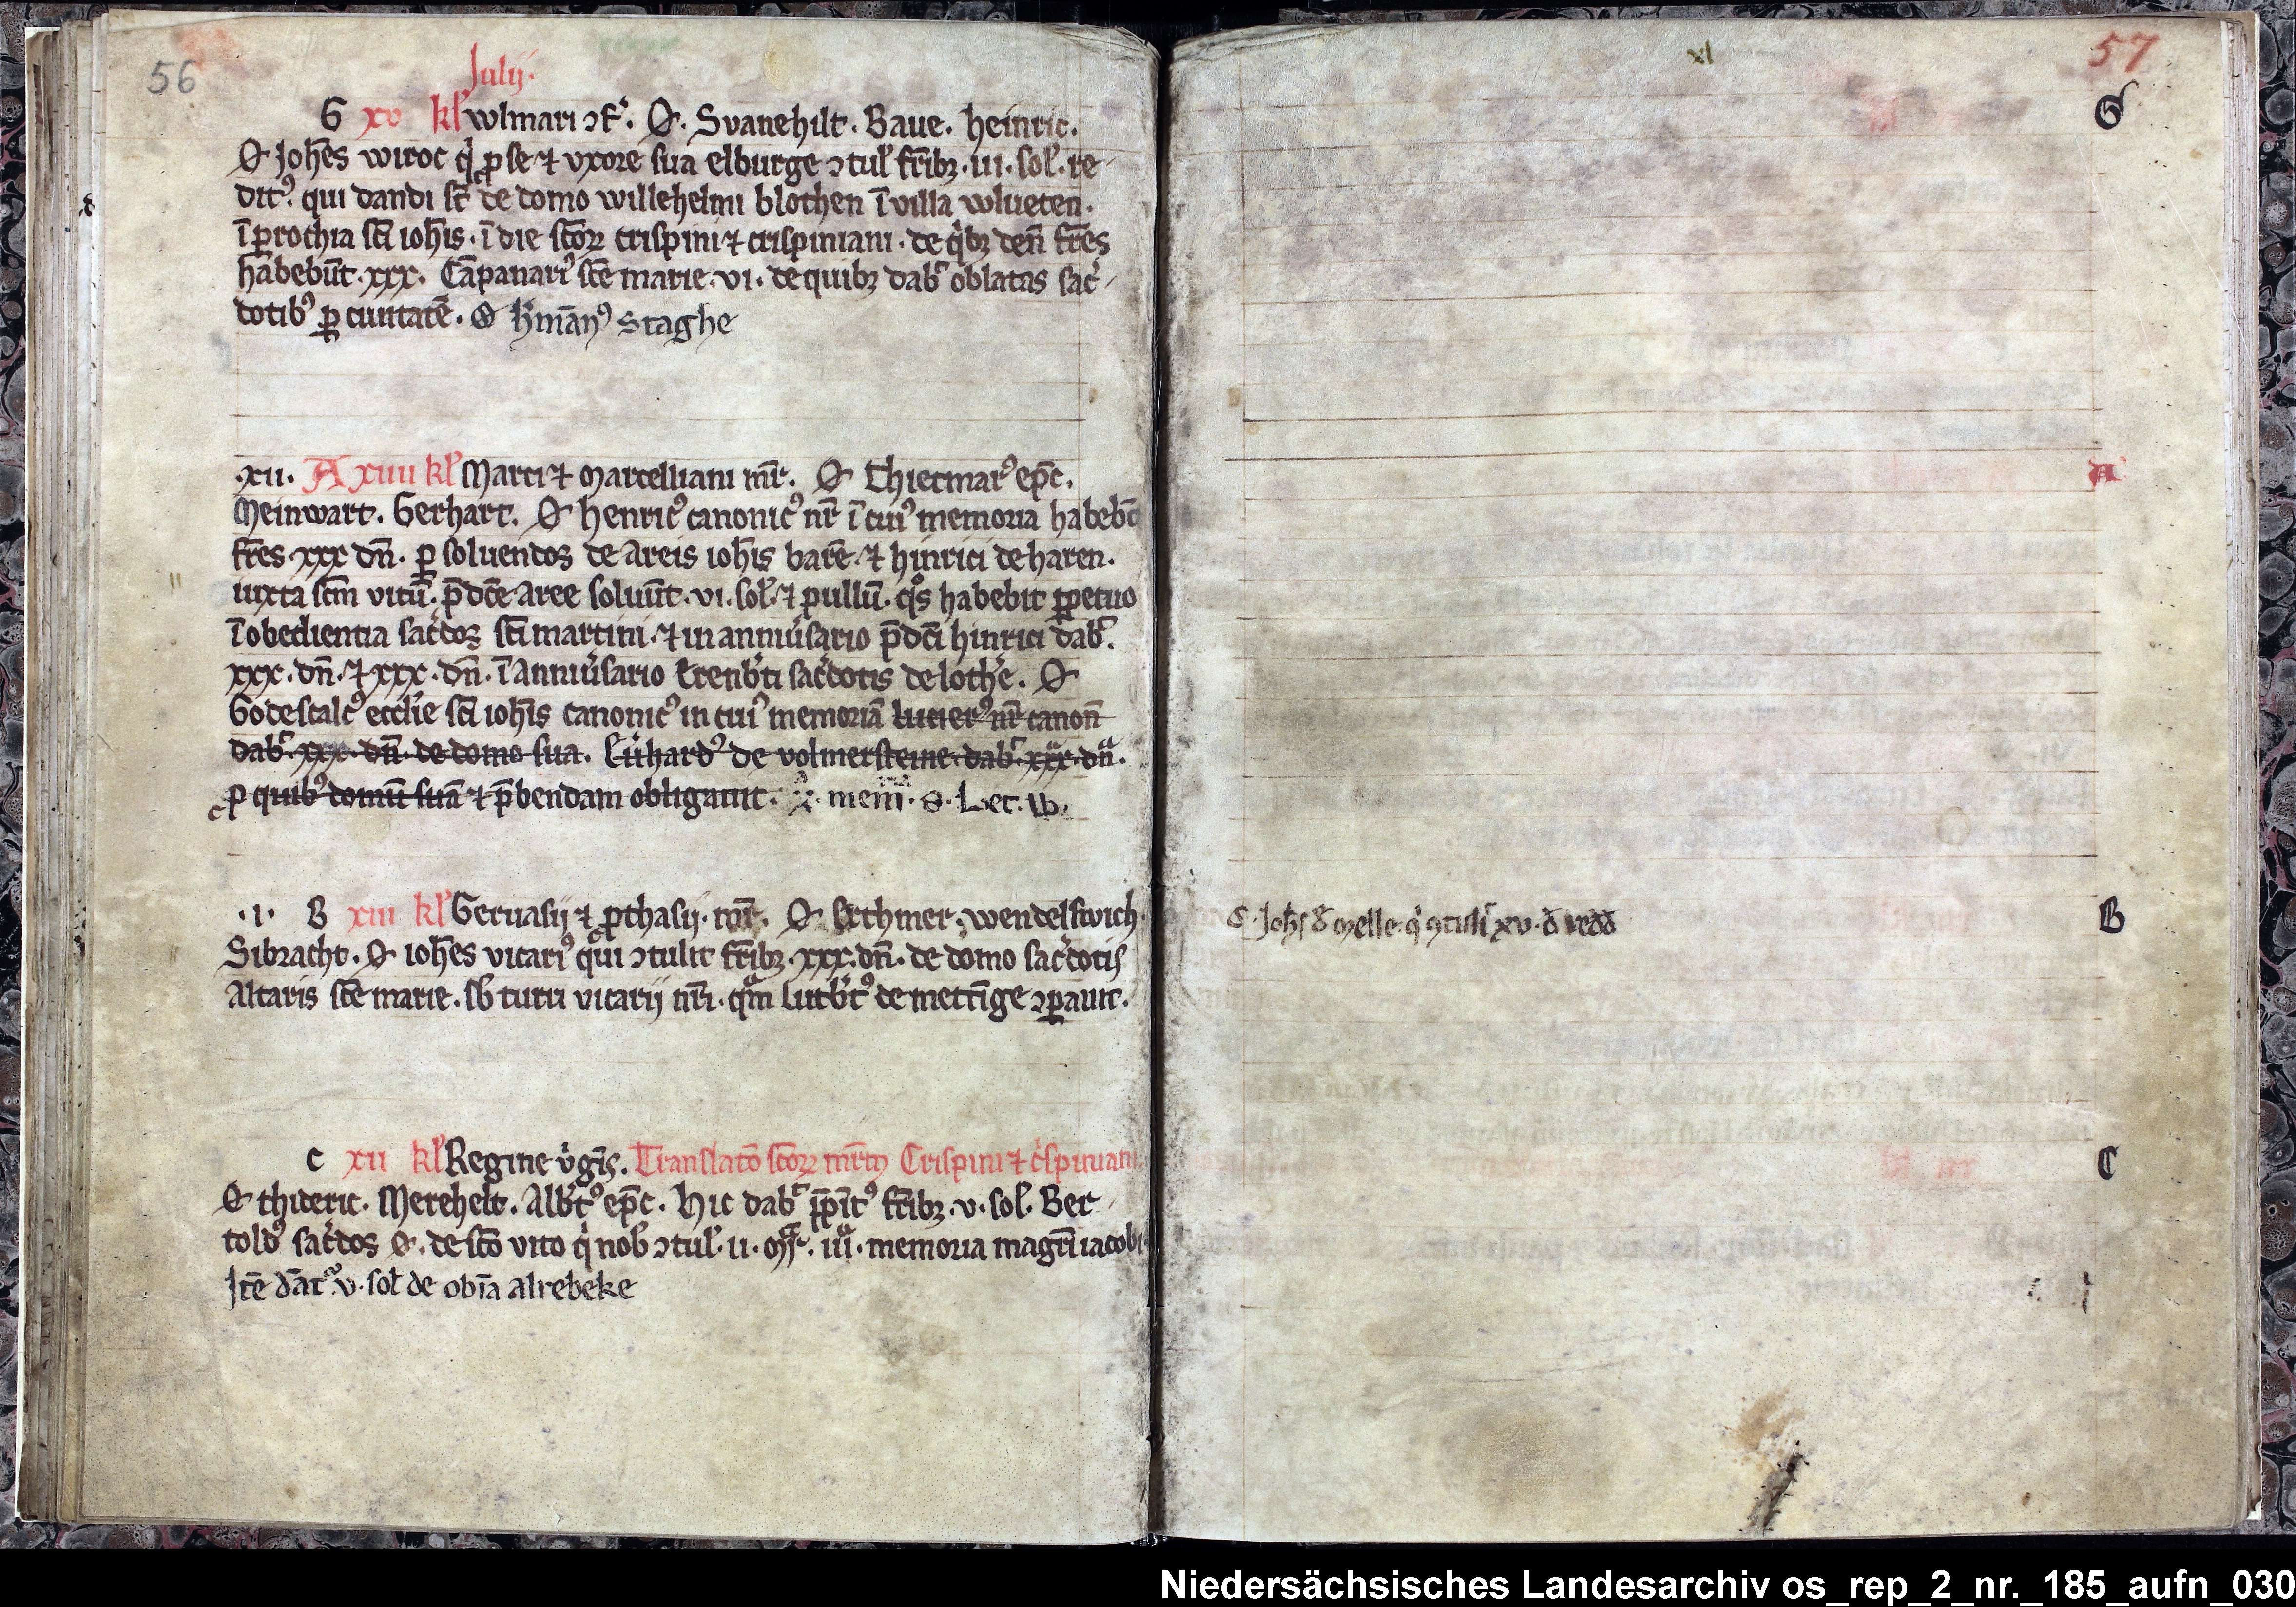 56
Julij.
G xv kl' wlmari ɔf'. O. Svanehilt. Baue. heinric.
O Joh̄es wiroc q' ꝓ se ⁊ vxore sua elburge ɔtul' fr̄ibꝫ. iii. sol'. re-
dit9. qui dandi st̄ de domo willehelmi blothen ī villa wlueten.
ī ꝑrochia sc̄i ioh̄is. ī die sc̄oꝝ crispini ⁊ crispiniani. de q'bꝫ den̄ fr̄es
habebūt. xxx. Cāpanari9 sc̄e marie. vi. de quibꝫ dab' oblatas sac'-
dotib9 ꝑ ciuitatē. O h'mān9 staghe
.xii. A xiiii kl' Marci ⁊ Marcelliani mr̄. O Thietmar9 ep̄c.
Meinwart. Gerhart. O henric9 canonic9 nr̄ ī cui9 memoria habeb̄t
fr̄es. xxx dn̄. ꝑsoluendos de areis ioh̄is barē. ⁊ hinrici de haren.
iuxta sc̄m vitū. p̄dc̄e aree soluūt. vi. sol'. ⁊ pullū. q°s habebit ꝑpetuo
ī obedientia sac'dos sc̄i martini. ⁊ in anniu'sario p̄dc̄i hinrici dab'.
xxx. dn̄. ⁊ xxx. dn̄. ī anniu'sario Etenb'ti sac'dotis de loth'e. O
Godescalc9 eccl'ie sc̄i ioh̄is canonic9 in cui9 memoriā luder9 nr̄ canon̄
dab'. xxx. dn̄. de domo sua. Euhard9 de volmersteine. dab'. xxx. dn̄.
ꝓ quib9 domū suā ⁊ p̄bendam obligauit. mem̄. S. Lec. w.
.i. B xiii kl' Geruasij ⁊ ꝓthasij. mr̄. O Erthmer. wendelswich.
Sibracht. O ioh̄es vicari9 qui ɔtulit fr̄ibꝫ. xxx. dn̄. de domo sac'dotis
Altaris sc̄e marie. sb' turri vicarij nr̄i. qᵃm Lutb't9 de mettīge ɔꝑauit.
O. Joh's d' Melle. q' ɔtulit xv. đ redđ
C xii kl' Regine v'gīs. Translatō sc̄oꝝ mr̄m Crispini ⁊ c'spiniani
O thideric. Merehelt. Alb't9 ep̄c. Hic dab' ꝑpīt9 fr̄ibꝫ. v. sol. Ber-
told9 sac'dos O. de sc̄o vito q' nob' ɔtul'. ii. Mᵃr. iiiᵃ. memoria magr̄i iacobi
Itē dāt' v. sol' de obīa alrebeke
xi
57
G
A
B
C
Niedersächsisches Landesarchiv os_rep_2_nr._185_aufn_030